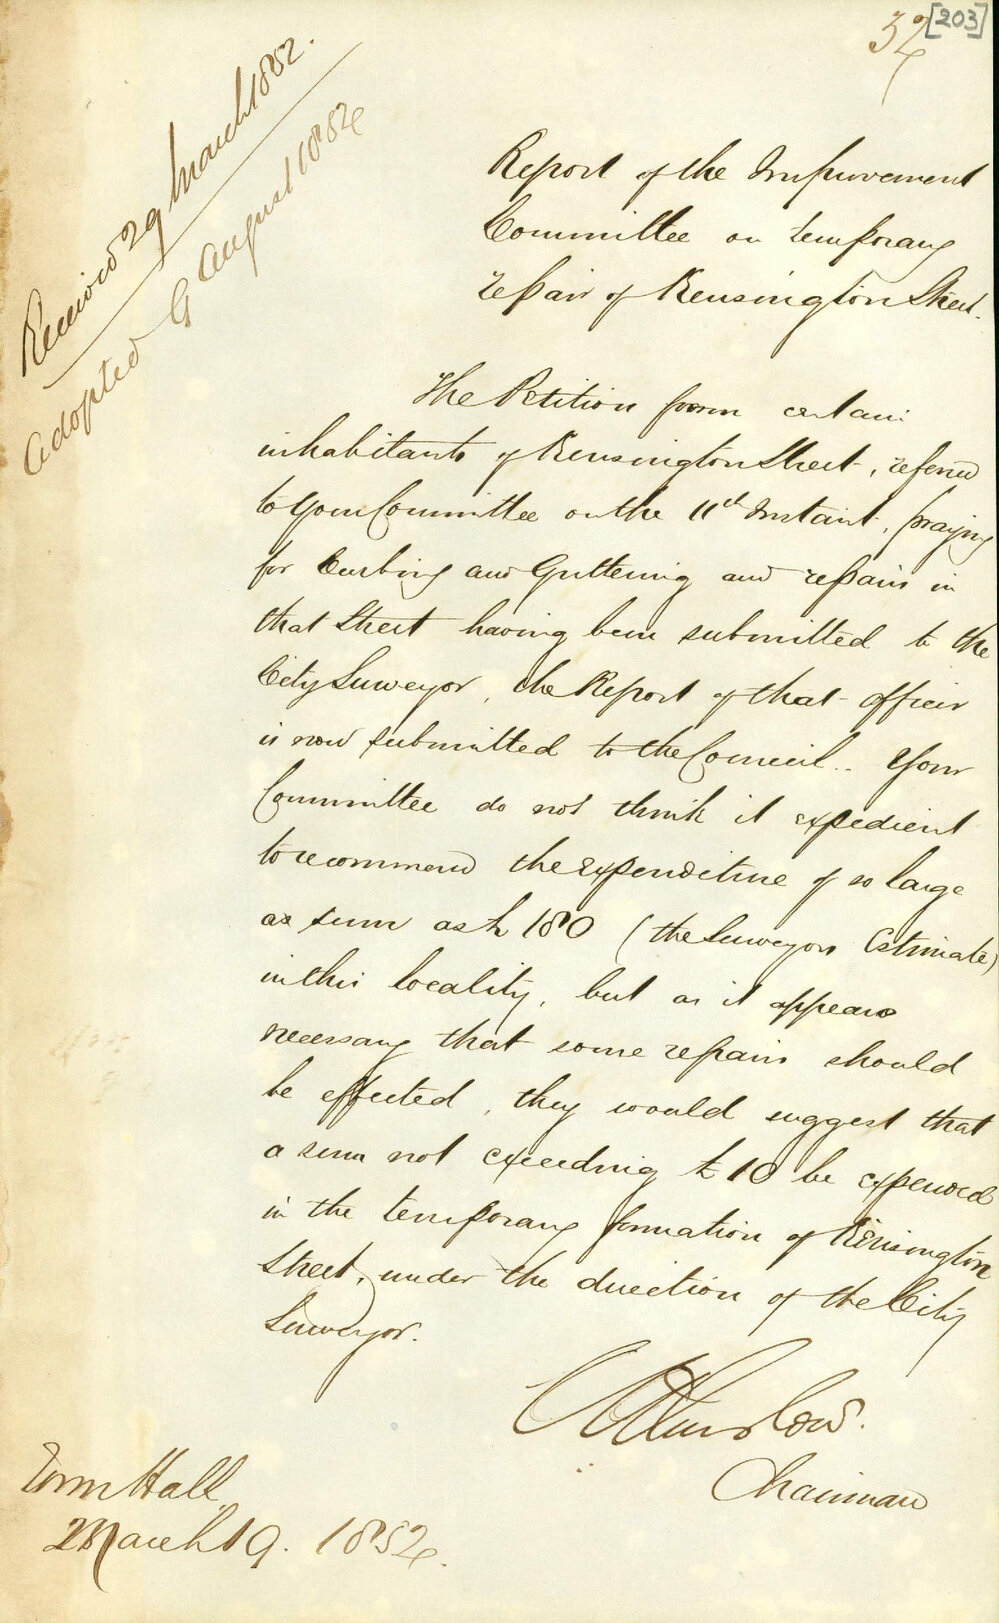 32
[203]
Received 29 March 1852.
Adopted 9 August 1852
Report of the Improvement
Committee on temporary
repair of Kensington Street.
The Petition from certain
inhabitants of Kensington Street, referred
to Your Committee on the 11th Instant, praying
for Curbing and Guttering and repairs in
that Street having been submitted to the
City Surveyor, the Report of that Officer
is now submitted to the Council. Your
Committee do not think it expedient
to recommend the expenditure of so large
a sum as £180 (the Surveyors Estimate)
in this locality, but as it appears
necessary that some repairs should
be effected, they would suggest that
a sum not exceeding £10 be expended
in the temporary formation of Kensington
Street, under the direction of the City
Surveyor.
Chairman
Town Hall
March 19. 1852.